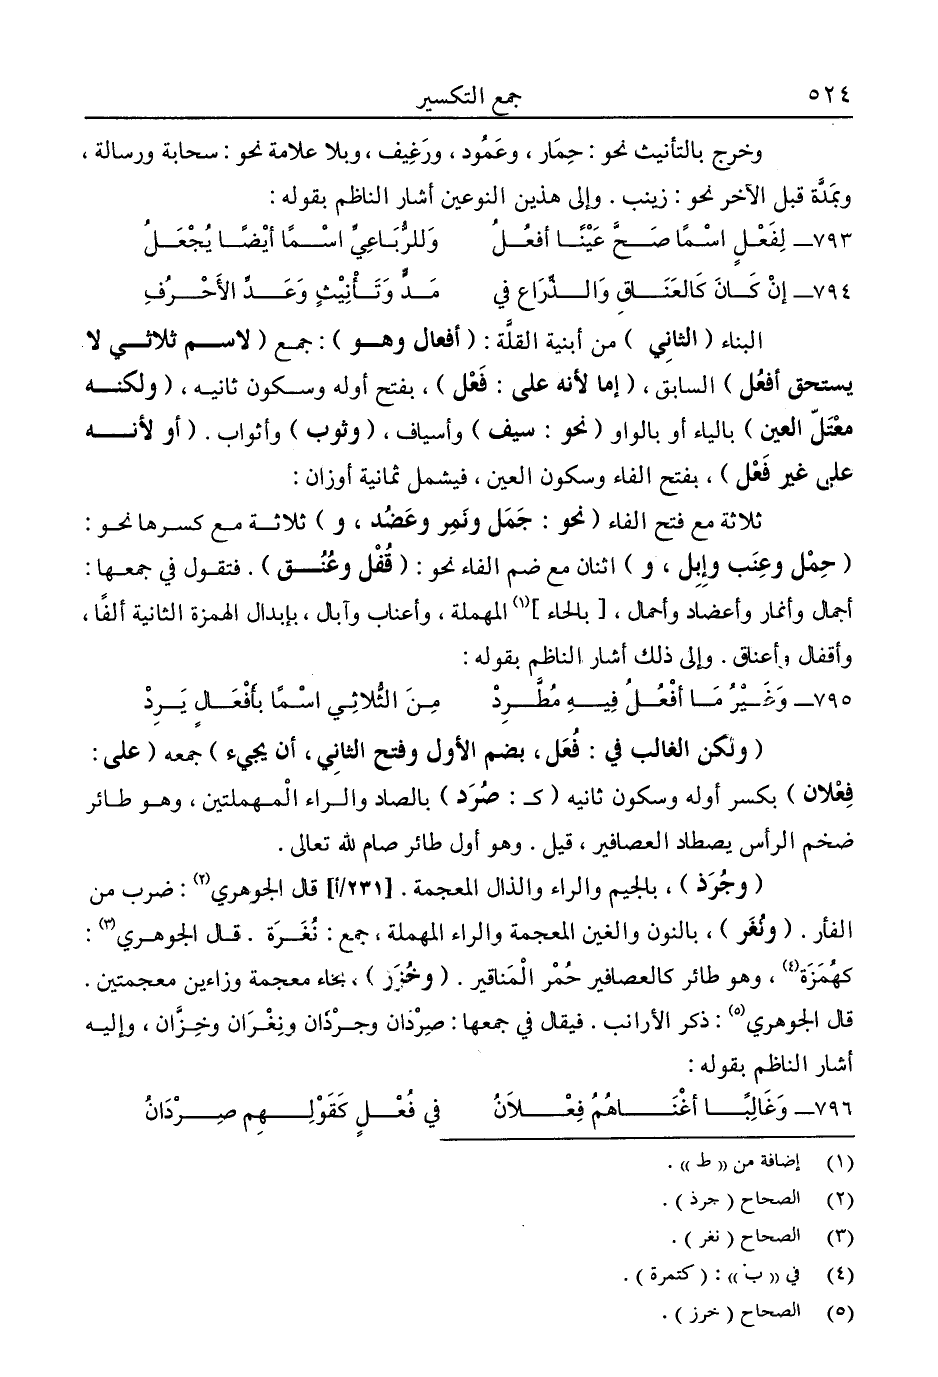 ٥٢٤ جمع التكسير
وخرج بالتأنيث نحو : حِمَار ، وعَمُود ، ورَغِيف ، وبلا علامة نحو : سحابة ورسالة ،
وبمَدَّة قبل الآخر نحو : زينب . وإلى هذين النوعين أشار الناظم بقوله :
٧٩٣ــ لِفَعْلٍ اسْمًا صَحَّ عَيْنًا أفعُلُ وَللرُّبَاعِيِّ اسْمًا أيْضًا يُجْعَلُ
٧٩٤ــ إنْ كَانَ كَالعَنَاقِ وَالذِّرَاعِ في مَدٍّ وَتَأْنِيْثٍ وَعَدِّ الأَحْرُفِ
البناء ( الثاني ) من أبنية القلَّة : ( أفعال وهو ) : جمع ( لاسم ثلاثي لا
يستحق أفعُل ) السابق ، ( إما لأنه على : فَعْل ) ، بفتح أوله وسكون ثانيه ، ( ولكنه
معْتَلّ العين ) بالياء أو بالواو ( نحو : سيف ) وأسياف ، ( وثوب ) وأثواب . ( أو لأنه
على غير فَعْل ) ، بفتح الفاء وسكون العين ، فيشمل ثمانية أوزان :
ثلاثة مع فتح الفاء ( نحو : جَمَل ونَمِر وعَضُد ، و ) ثلاثة مع كسرها نحو :
( حِمْل وعِنَب وإبِل ، و ) اثنان مع ضم الفاء نحو : ( قُفْل وعُنُق ) . فتقول في جمعها :
أجمال وأنمار وأعضاد وأحمال ، [ بالحاء ](١) المهملة ، وأعناب وآبال ، بإبدال الهمزة الثانية ألفًا ،
وأقفال وأعناق . وإلى ذلك أشار الناظم بقوله :
٧٩٥ــ وَغَيْرُ مَا أفْعُلُ فِيهِ مُطَّرِدْ مِنَ الثُّلاثِي اسْمًا بأَفْعَالٍ يَرِدْ
( ولكن الغالب في : فُعَل ، بضم الأول وفتح الثاني ، أن يجيء ) جمعه ( على :
فِعْلان ) بكسر أوله وسكون ثانيه ( كـ : صُرَد ) بالصاد والراء الْمهملتين ، وهو طائر
ضخم الرأس يصطاد العصافير ، قيل . وهو أول طائر صام لله تعالى .
( وجُرَذ ) ، بالجيم والراء والذال المعجمة . [٢٣١/أ] قال الجوهري(٢) : ضرب من
الفأر . ( ونُغَر ) ، بالنون والغين المعجمة والراء المهملة ، جمع : نُغَرَة . قال الجوهري(٣) :
كهُمَزَة(٤) ، وهو طائر كالعصافير حُمْر الْمَناقير . ( وخُزَز ) ، بخاء معجمة وزاءين معجمتين .
قال الجوهري(٥) : ذكر الأرانب . فيقال في جمعها : صِرْدَان وجِرْذَان ونِغْرَان وخِزَّان ، وإليه
أشار الناظم بقوله :
٧٩٦ــ وَغَالِبًا أغْنَاهُمُ فِعْلاَنُ في فُعْلٍ كَقَوْلِهِم صِرْدَانُ
(١) إضافة من « ط » .
(٢) الصحاح ( جرذ ) .
(٣) الصحاح ( نغر ) .
(٤) في « ب » : ( كتمرة ) .
(٥) الصحاح ( خرز ) .